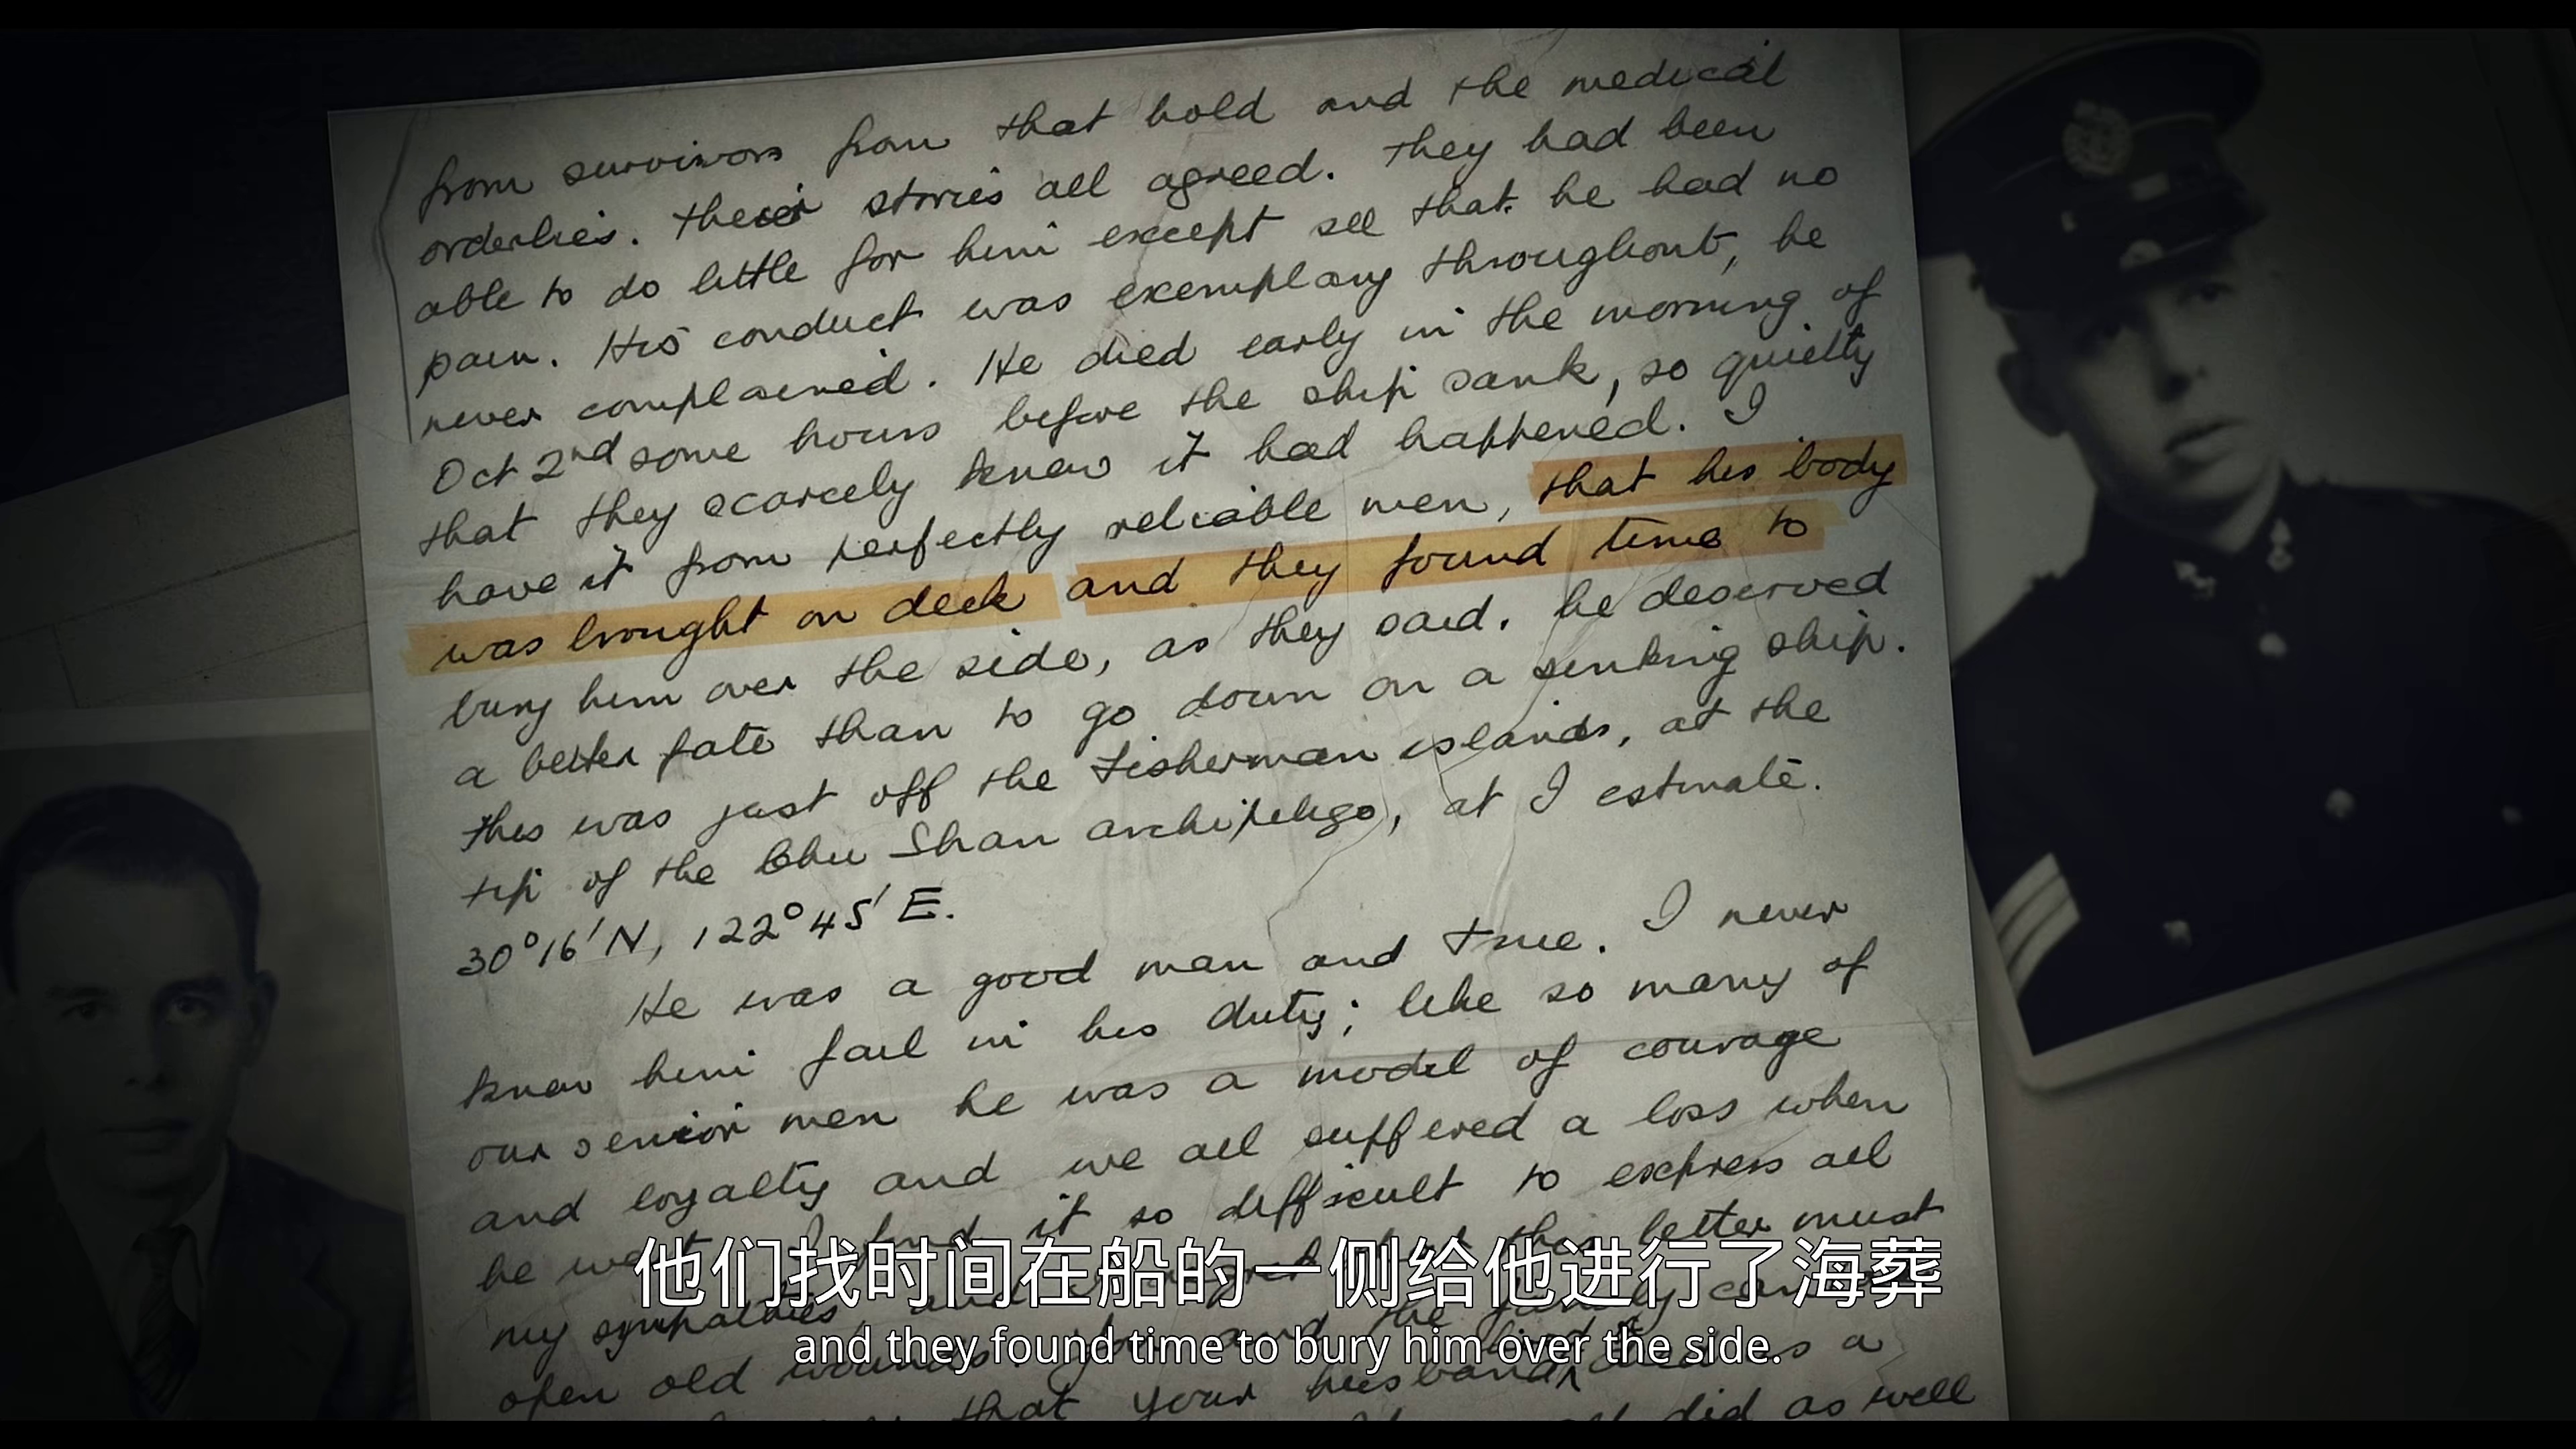 from survivors from that hold and the medical
orderlies. Their stories all agreed. They had been
able to do little for him except see that he had no
pain. His conduct was exemplary throughout, he
never complained. He died early in the morning of
Oct 2nd some hours before the ship sank, so quietly
that they scarcely knew it had happened. I
have it from perfectly reliable men, that his body
was brought on deck and they found time to
bury him over the side, as they said. he deserved
a better fate than to go down on a sinking ship.
This was just off the Fisherman islands, at the
tip of the Chu Shan archipelego, at I estimate.
30°16'N, 122°45'E.
He was a good man and true. I never
knew him fail in his duty; like so many of
our senior men he was a model of courage
and loyalty and we all suffered a loss when
he went. I find it so difficult to express all
my sympathies, and this letter must
open old wounds. the family
that your husband as a
did as well
他们找时间在船的一侧给他进行了海葬
and they found time to bury him over the side.